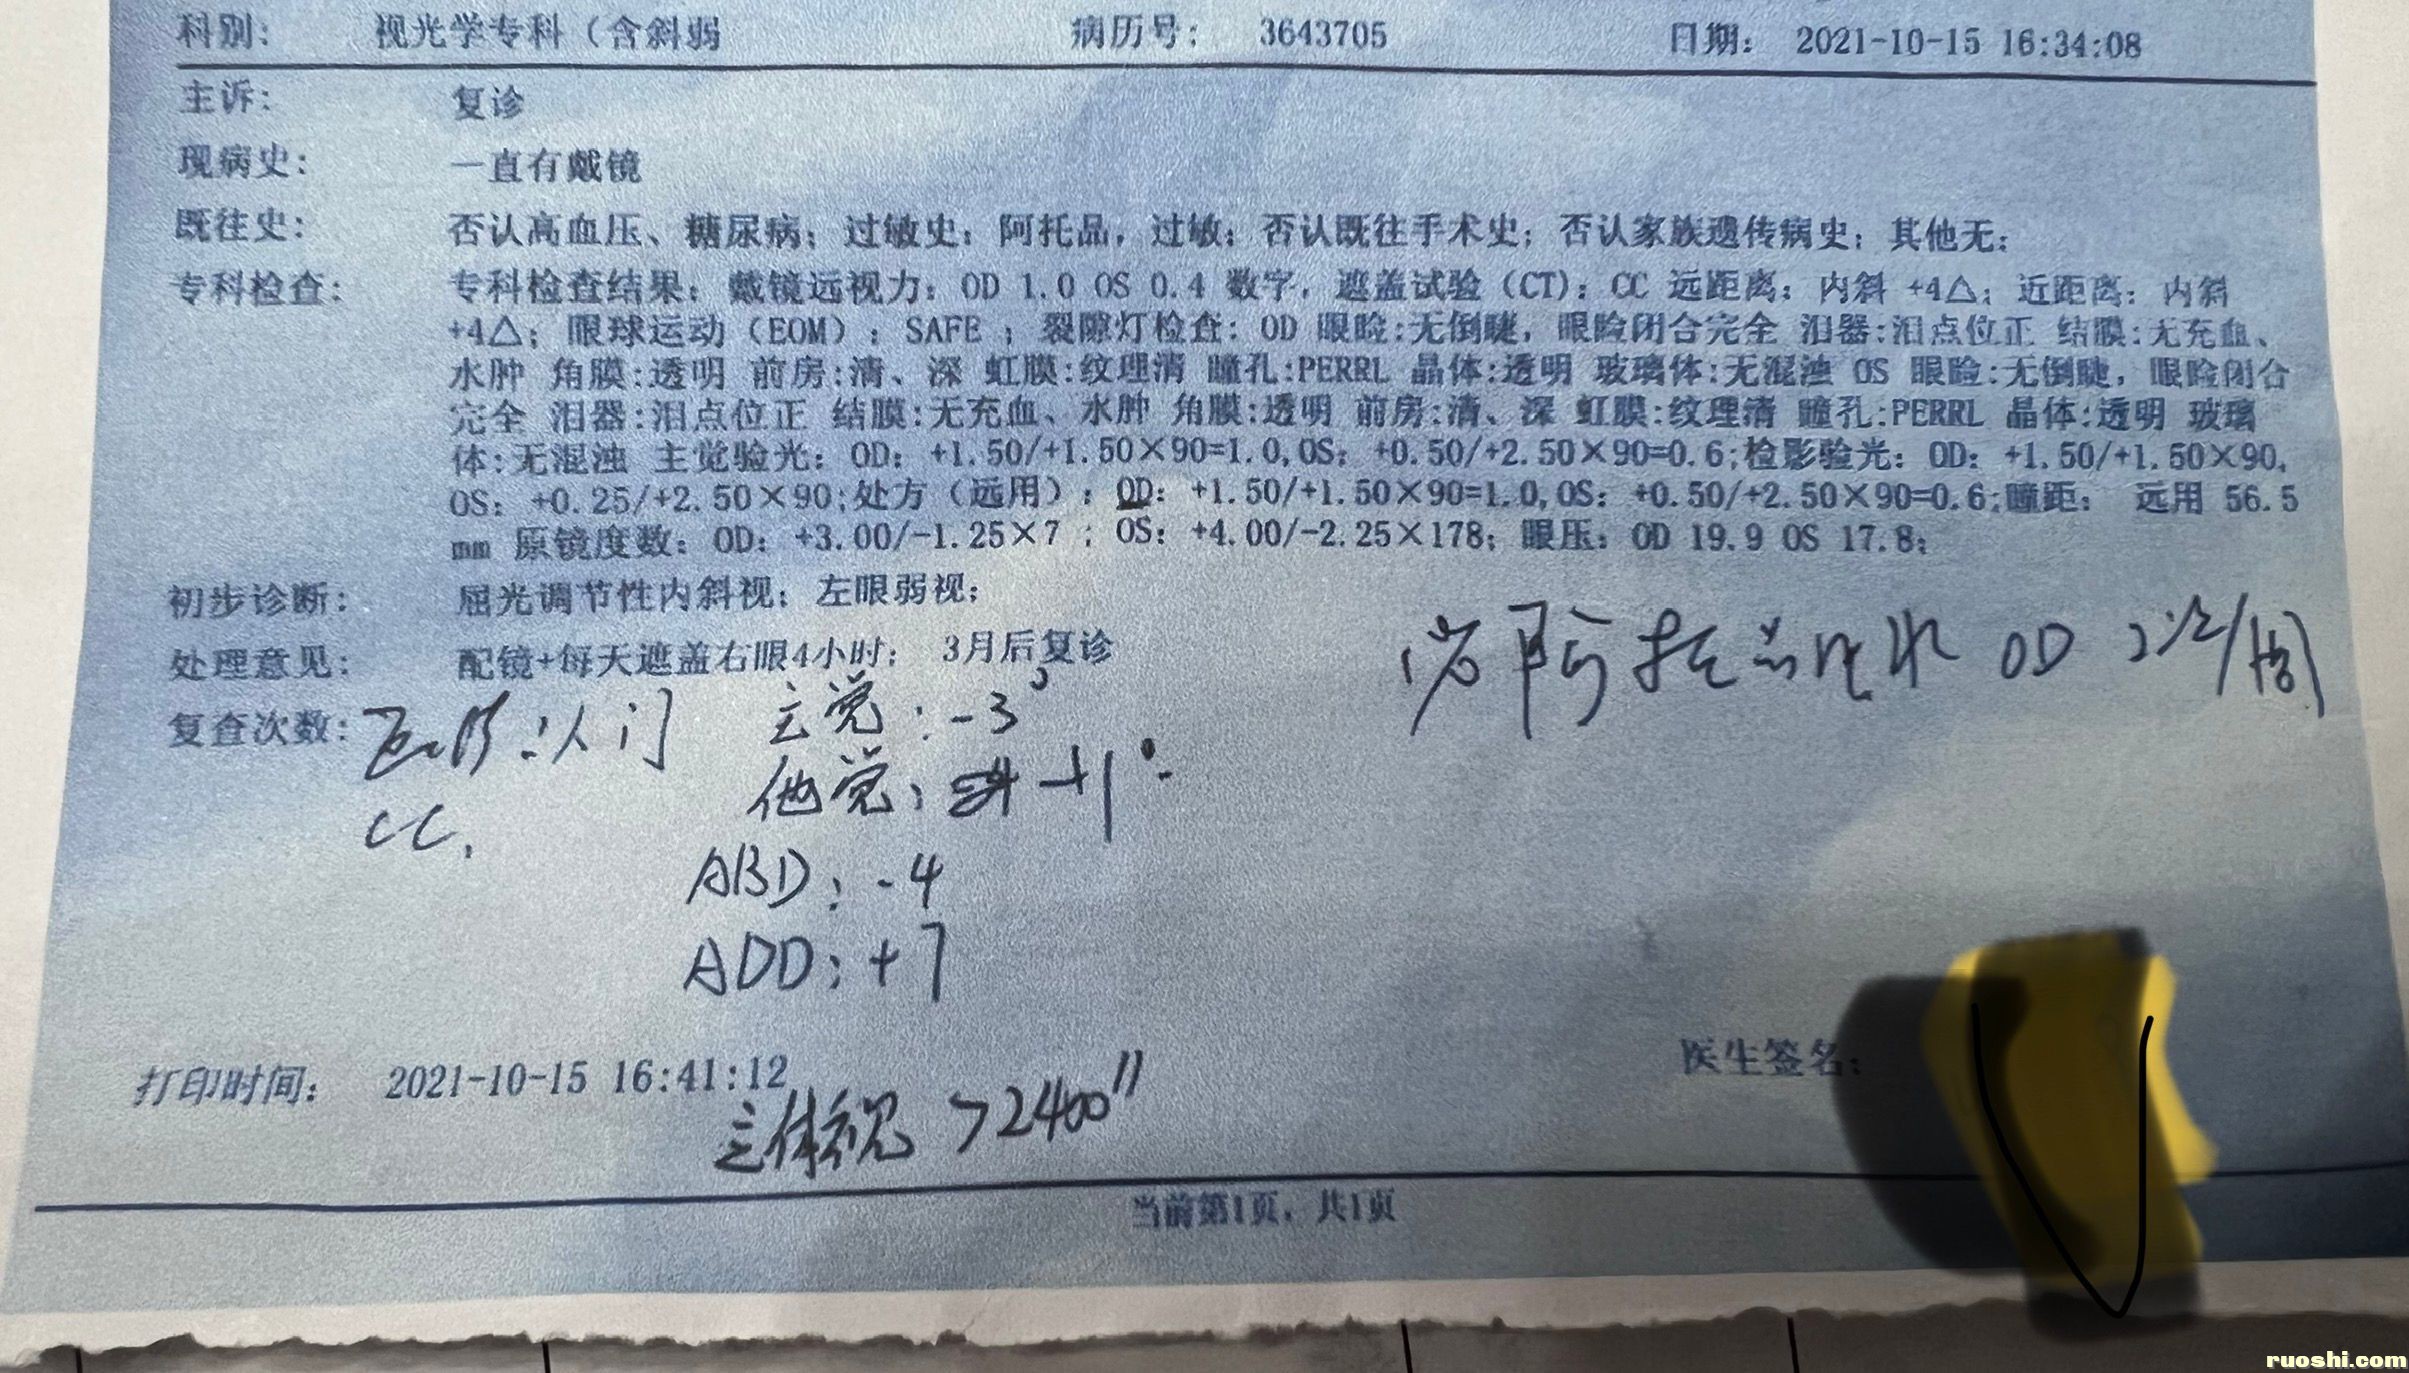 科别： 视光学专科（含斜弱 病历号： 3643705 日期： 2021-10-15 16:34:08
主诉： 复诊
现病史： 一直有戴镜
既往史： 否认高血压、糖尿病；过敏史：阿托品，过敏；否认既往手术史；否认家族遗传病史；其他无；
专科检查： 专科检查结果：戴镜远视力：OD 1.0 OS 0.4 数字，遮盖试验（CT）：CC 远距离：内斜 +4△；近距离：内斜
+4△；眼球运动（EOM）：SAFE ；裂隙灯检查：OD 眼睑:无倒睫，眼睑闭合完全 泪器:泪点位正 结膜:无充血、
水肿 角膜:透明 前房:清、深 虹膜:纹理清 瞳孔:PERRL 晶体:透明 玻璃体:无混浊 OS 眼睑:无倒睫，眼睑闭合
完全 泪器:泪点位正 结膜:无充血、水肿 角膜:透明 前房:清、深 虹膜:纹理清 瞳孔:PERRL 晶体:透明 玻璃
体:无混浊 主觉验光：OD：+1.50/+1.50×90=1.0,OS：+0.50/+2.50×90=0.6;检影验光：OD：+1.50/+1.50×90,
OS：+0.25/+2.50×90;处方（远用）：OD：+1.50/+1.50×90=1.0,OS：+0.50/+2.50×90=0.6;瞳距： 远用 56.5
mm 原镜度数：OD：+3.00/-1.25×7 ；OS：+4.00/-2.25×178；眼压：OD 19.9 OS 17.8；
初步诊断： 屈光调节性内斜视；左眼弱视；
处理意见： 配镜+每天遮盖右眼4小时； 3月后复诊
阿托品眼水 OD 2次/周
复查次数：
主觉：-3°
他觉： +1°
CC.
ABD：-4
ADD：+7
打印时间： 2021-10-15 16:41:12
医生签名：
立体视 >2400"
当前第1页，共1页
ruoshi.com